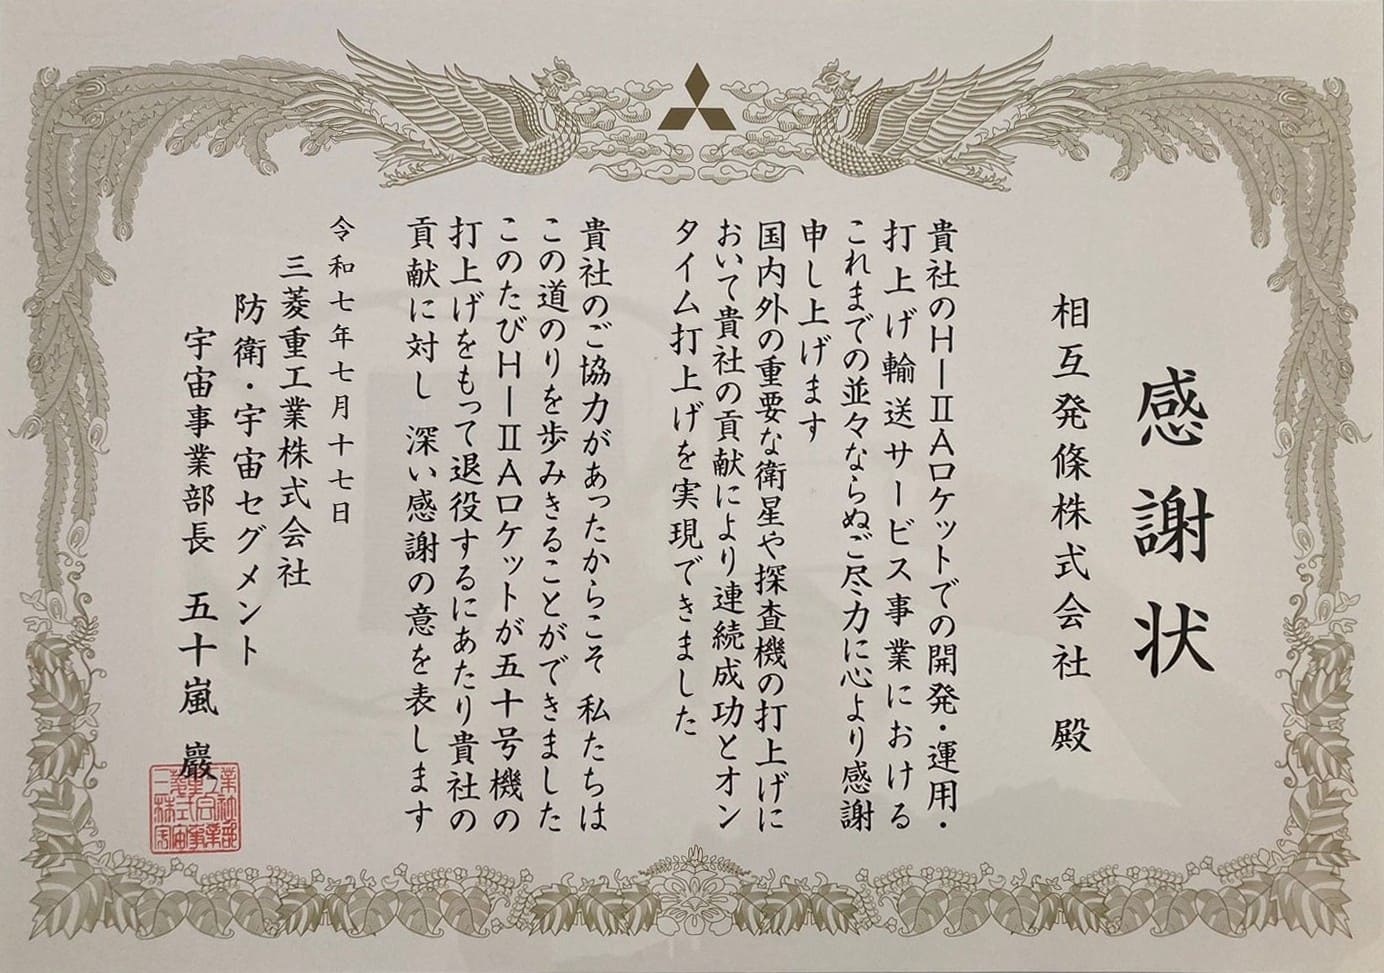 感謝状
相互発條株式会社 殿
貴社のH－ⅡAロケットでの開発・運用・
打上げ輸送サービス事業における
これまでの並々ならぬご尽力に心より感謝
申し上げます
国内外の重要な衛星や探査機の打上げに
おいて貴社の貢献により連続成功とオン
タイム打上げを実現できました
貴社のご協力があったからこそ 私たちは
この道のりを歩みきることができました
このたびH－ⅡAロケットが五十号機の
打上げをもって退役するにあたり貴社の
貢献に対し 深い感謝の意を表します
令和七年七月十七日
三菱重工業株式会社
防衛・宇宙セグメント
宇宙事業部長 五十嵐 巖